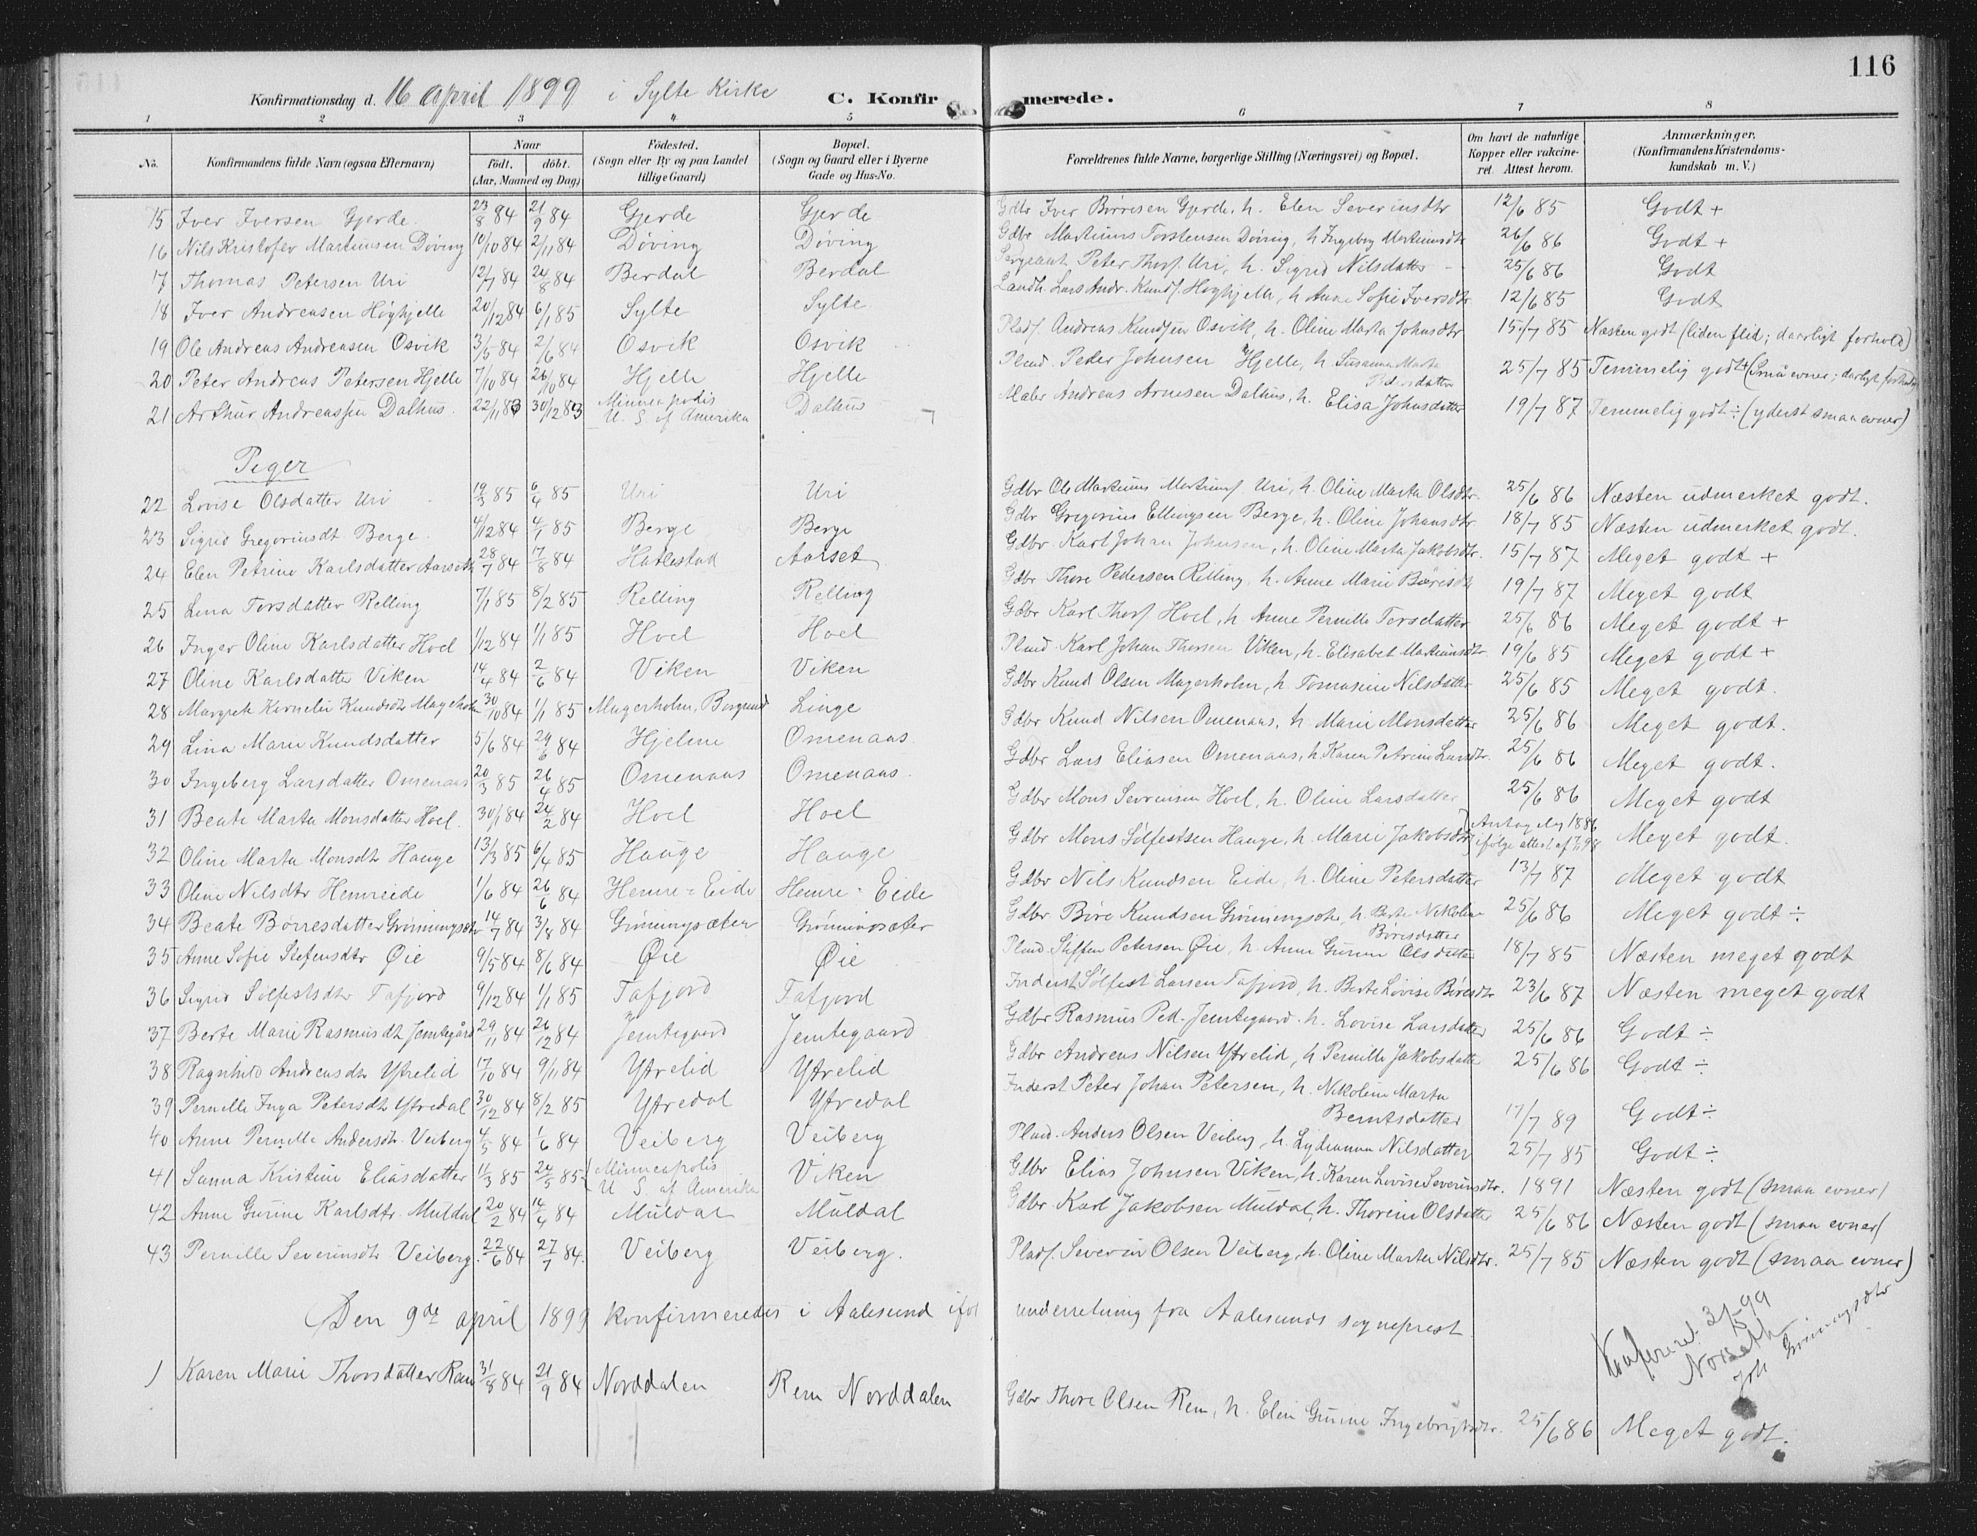 116
Konfirmationsdag d. 16 april 1899 i Sylte Kirke C. Konfirmerede.
1 2 3 4 5 6 7 8
No. Konfirmandens fulde Navn (ogsaa Efternavn) Naar født. døbt. (Aar, Maaned og Dag) Fødested. (Sogn eller By og paa Landet tillige Gaard) Bopæl. (Sogn og Gaard eller i Byerne Gade og Hus-No. Forældrenes fulde Navne, borgerlige Stilling (Næringsvei) og Bopæl. Om havt de naturlige Kopper eller vakcineret. Attest herom. Anmærkninger, (Konfirmandens Kristendomskundskab m. V.)
15 Iver Iversen Gjerde 23/8 84 21/9 84 Gjerde Gjerde Gdbr Iver Børresen Gjerde, h. Elen Severinsdtr 12/6 85 Godt +
16 Nils Kristofer Martinusen Døving 10/10 84 2/11 84 Døving Døving Gdbr Martinus Torstensen Døving, h Ingeborg Martinusdtr 26/6 86 Godt +
17 Thomas Petersen Uri 12/7 84 24/8 84 Berdal Berdal Sergeant Peter Thors. Uri, h. Sigrid Nilsdatter 25/6 86 Godt
18 Iver Andreasen Høghjelle 20/12 84 6/1 85 Sylte Sylte Landh. Lars Andr. Knuds. Høghjelle, h Anne Sofie Iversdtr 12/6 85 Godt
19 Ole Andreas Andreasen Osvik 3/5 84 2/6 84 Osvik Osvik Plads. Andreas Knudsen Osvik, h. Oline Marta Johnsdtr 15/7 85 Næsten godt (liden flid; daarligt forhold)
20 Peter Andreas Petersen Hjelle 7/10 84 26/10 84 Hjelle Hjelle Plmd. Peder Johnsen Hjelle, h Susanna Marta Pedersdatter 25/7 85 Temmelig godt + (Små evner; darligt forhold)
21 Arthur Andreassen Dalhus 22/11 83 30/12 83 Minneapolis U. S. af Amerika Dalhus Maler Andreas Arnesen Dalhus, h. Elisa Johnsdatter 19/7 87 Temmelig godt ÷ (yderst smaa evner)
Piger
22 Lovise Olsdatter Uri 19/3 85 6/4 85 Uri Uri Gdbr Ole Martinus Martinus. Uri, h. Oline Marta Olsdtr. 25/6 86 Næsten udmerket godt.
23 Sigrid Gregoriusdt Berge 4/12 84 4/1 85 Berge Berge Gdbr Gregorius Ellingsen Berge, h. Oline Johansdtr 18/7 85 Næsten udmerket godt.
24 Elen Petrine Karlsdatter Aarseth 28/7 84 17/8 84 Hatlestad Aarset Gdbr. Karl Johan Johnsen, h. Oline Marta Jakobsdtr. 15/7 87 Meget godt +
25 Lina Torsdatter Relling 7/1 85 8/2 85 Relling Relling Gdbr Thore Pedersen Relling, h. Anne Marie Børresdtr 19/7 87 Meget godt
26 Inger Oline Karlsdatter Hoel 1/12 84 1/1 85 Hoel Hoel Gdbr Karl Thors. Hoel, h Anne Pernille Torsdatter 25/6 86 Meget godt +
27 Oline Karlsdatter Viken 14/4 84 2/6 84 Viken Viken Plmd. Karl Johan Thorsen Viken, h. Elisabet Martinusdtr 19/6 85 Meget godt +
28 Margrete Kornelie Knudsdtr Mageholm 30/10 84 1/1 85 Magerholm, Borgund Linge Gdbr Knud Olsen Magerholm, h Tomasine Nilsdatter 25/6 85 Meget godt.
29 Lina Marie Knudsdatter 5/6 84 29/6 84 Hjelme Omenaas Gdbr Knud Nilsen Omenaas, h Marie Monsdatter 25/6 86 Meget godt.
30 Ingeberg Larsdatter Omenaas 20/3 85 26/4 85 Omenaas Omenaas. Gdbr Lars Eliasen Omenaas, h Karen Petrine Larsdtr. 25/6 86 Meget godt.
31 Beate Marta Monsdatter Hoel. 30/1 84 24/2 84 Hoel Hoel Gdbr Mons Sevrinsen Hoel, h. Oline Larsdatter 25/6 86 Meget godt
32 Oline Marta Monsdtr Hauge 13/3 85 6/4 85 Hauge Hauge Gdbr Mons Sølfestsen Hauge, h. Marie Jakobsdtr Antagelig 1886 ifølge attest af 98 Meget godt.
33 Oline Nilsdtr Hemreide 1/6 84 26/6 84 Hemre=Eide Hemre=Eide Gdbr Nils Knudsen Eide, h. Oline Petersdatter 13/7 87 Meget godt
34 Beate Børresdatter Grønningsæter 14/7 84 3/8 84 Grønningsæter Grønningsæter Gdbr Børe Knudsen Grønningsætr, h. Berte Nikoline Børesdatter 25/6 86 Meget godt ÷
35 Anne Sofie Stefensdtr Øie 9/5 84 8/6 84 Øie Øie Plmd. Steffen Petersen Øie, h. Anne Gurine Olsdatter 18/7 85 Næsten meget godt
36 Sigrid Sølfestsdtr Tafjord 9/12 84 1/1 85 Tafjord Tafjord Inderst Sølfest Larsen Tafjord, h. Berte Lovise Børesdtr 23/6 87 Næsten meget godt
37 Berte Marie Rasmusdt Jemtegård 29/11 84 26/12 84 Jemtegaard Jemtegaard Gdbr Rasmus Ped. Jemtegaard. h. Lovise Larsdatter 25/6 86 Godt ÷
38 Ragnhild Andreasdtr Ytrelid 17/10 84 9/11 84 Ytrelid Ytrelid Gdbr Andreas Nilsen Ytrelid, h Pernille Jakobsdatter 25/6 86 Godt ÷
39 Pernille Inga Petersdtr Ytredal 30/12 84 8/2 85 Ytredal Ytredal Inderst Peter Johan Petersen, h. Nikoline Marta Berntsdatter 17/7 89 Godt ÷
40 Anne Pernille Andersdtr. Veiberg 4/5 84 1/6 84 Veiberg Veiberg Plmd. Anders Olsen Veiberg, h. Lydianna Nilsdatter 25/7 85 Godt ÷
41 Sanna Kristine Eliasdatter 11/3 85 24/5 85 Minneapolis U S. af Amerika Viken Gdbr Elias Johnsen Viken, h. Karen Lovise Severinsdtr. 1891 Næsten godt (smaa evner)
42 Anne Gurine Karlsdtr. Muldal 20/2 84 14/4 84 Muldal Muldal Gdbr. Karl Jakobsen Muldal, h. Thorine Olsdatter 25/6 86 Næsten godt (smaa evner)
43 Pernille Severinsdtr Veiberg. 22/6 84 27/7 84. Veiberg Veiberg. Plads. Severin Olsen Veiberg, h. Oline Marta Nilsdtr. 25/7 85 Næsten godt (smaa evner)
Den 9de april 1899 konfirmeredes i Aalesund iføl underretning fra Aalesunds sogneprest.
Konfereret 3/5-99
Norseth
Joh Grønningsætr
1 Karen Marie Thorsdatter Rem 31/8 84 21/9 84 Norddalen Rem Norddalen Gdbr Thore Olsen Rem, h. Elen Gurine Ingebrigtsdtr. 25/6 86 Meget godt.